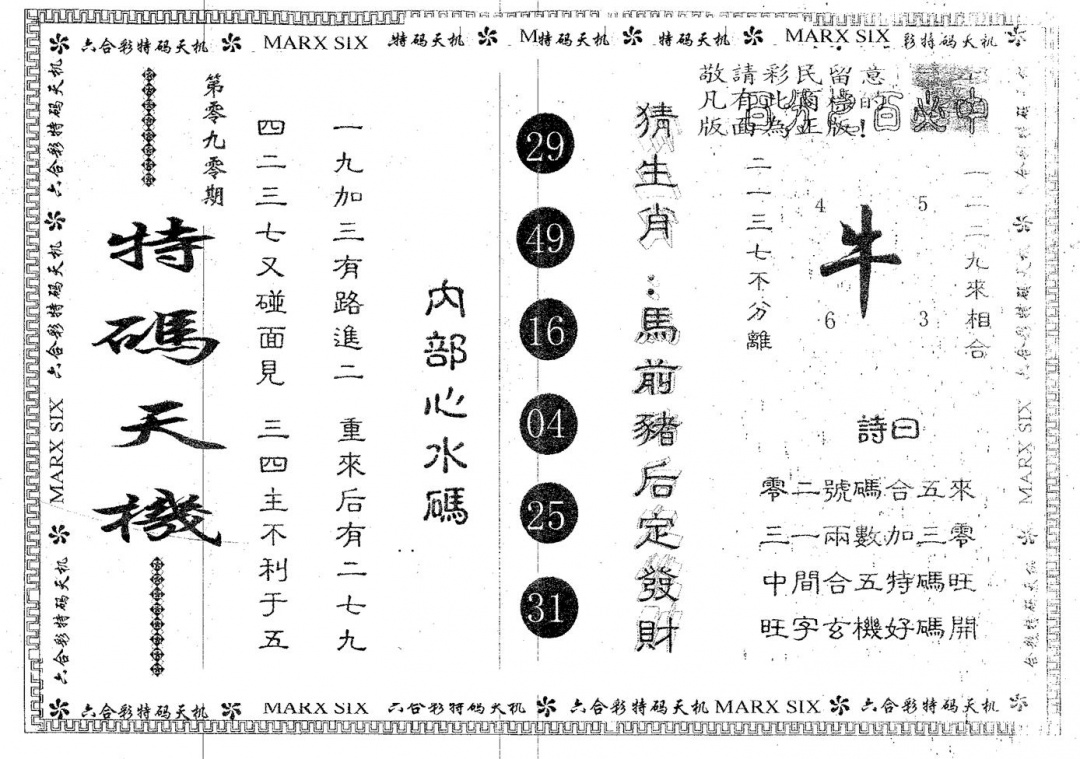 六合彩特码天机 MARX SIX 特码天机 M特码天机 特码天机 MARX SIX 彩特码天机
六合彩特码天机
六合彩特码天机
六合彩特码天机
MARX SIX
六合彩特码天机
第零九零期
特碼天機
四二三七又碰面見 三四主不利于五
一九加三有路進二 重來后有二七九
內部心水碼
29
49
16
04
25
31
猜生肖:馬前豬后定發財
敬請彩民留意
凡有此圖樣的
版面為正版!
百分百必中
二一三七不分離
4
5
牛
6
3
一二二九來相合
詩曰
零二號碼合五來
三一兩數加三零
中間合五特碼旺
旺字玄機好碼開
MARX SIX
六合彩特码天机 MARX SIX 六合彩特码天机 六合彩特码天机 MARX SIX 六合彩特码天机